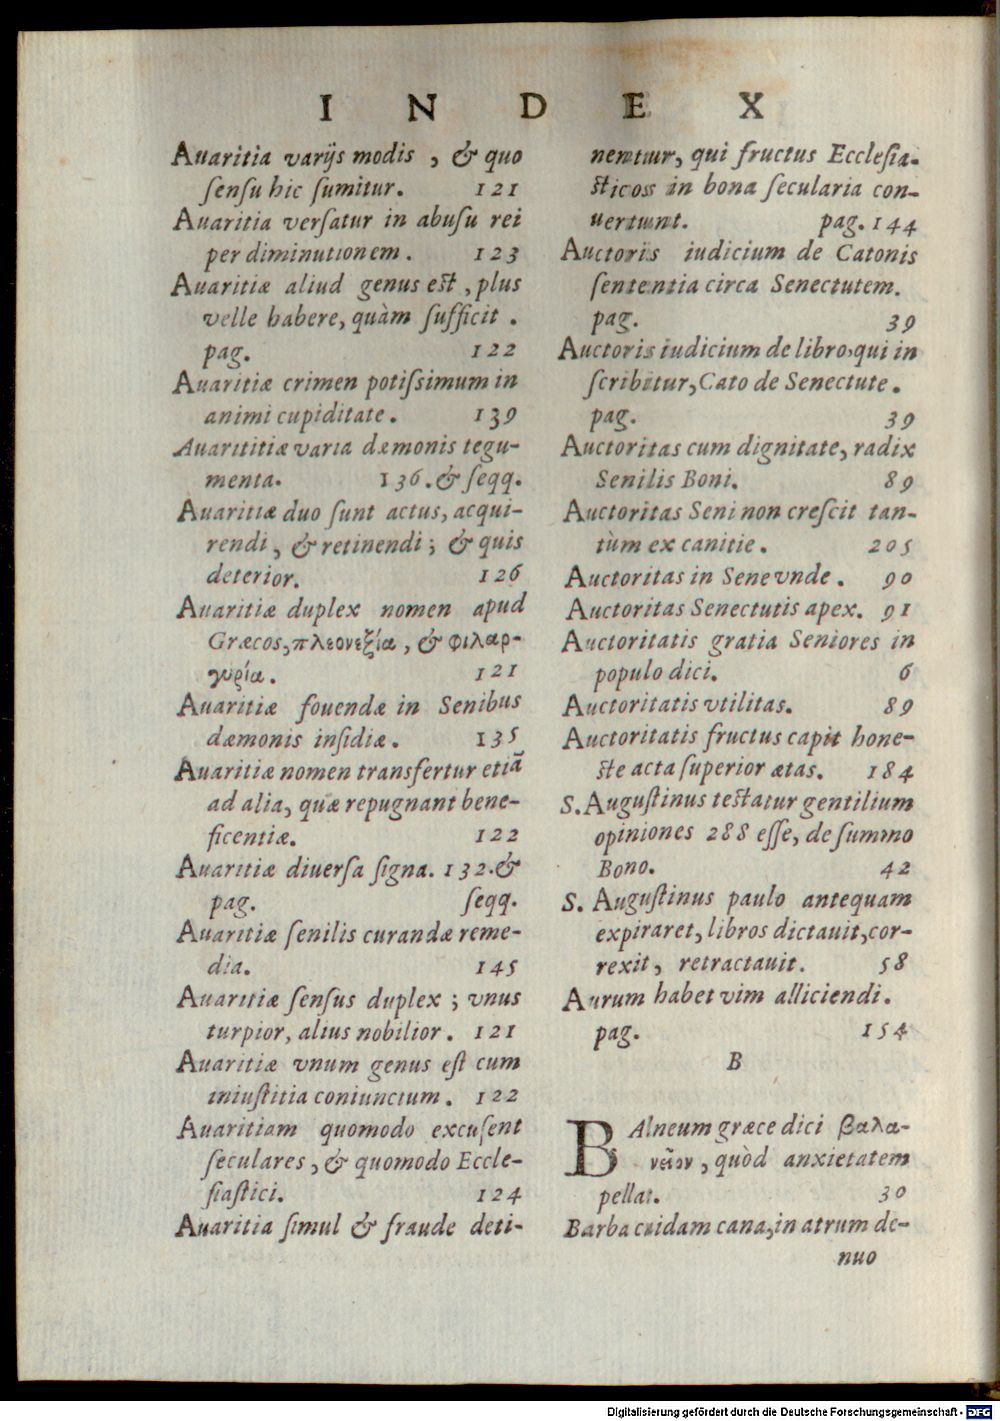 I N D E X
Auaritia varijs modis , & quo
ſenſu hic ſumitur. 121
Auaritia verſatur in abuſu rei
per diminutionem . 123
Auaritiæ aliud genus eſt , plus
velle habere, quàm ſufficit .
pag. 122
Auaritiæ crimen potiſsimum in
animi cupiditate . 139
Auarititiæ varia dæmonis tegu-
menta. 136. & ſeqq.
Auaritiæ duo ſunt actus, acqui-
rendi , & retinendi ; & quis
deterior. 126
Auaritiæ duplex nomen apud
Græcos, πλεονεξία , & φιλαρ-
γυρία . 121
Auaritiæ fouendæ in Senibus
dæmonis inſidiæ . 135
Auaritiæ nomen transfertur etiã
ad alia, quæ repugnant bene-
ficentiæ. 122
Auaritiæ diuerſa ſigna. 132. &
pag. ſeqq.
Auaritiæ ſenilis curandæ reme-
dia. 145
Auaritiæ ſenſus duplex ; vnus
turpior, alius nobilior . 121
Auaritiæ vnum genus eſt cum
iniuſtitia coniunctum . 122
Auaritiam quomodo excuſent
ſeculares , & quomodo Eccle-
ſiaſtici. 124
Auaritia ſimul & fraude deti-
nentur, qui fructus Eccleſia-
ſticos in bona ſecularia con-
uertunt. pag. 144
Auctoris iudicium de Catonis
ſententia circa Senectutem.
pag. 39
Auctoris iudicium de libro, qui in
ſcribitur, Cato de Senectute .
pag. 39
Auctoritas cum dignitate, radix
Senilis Boni. 89
Auctoritas Seni non creſcit tan-
tùm ex canitie . 205
Auctoritas in Sene vnde . 90
Auctoritas Senectutis apex. 91
Auctoritatis gratia Seniores in
populo dici. 6
Auctoritatis vtilitas. 89
Auctoritatis fructus capit hone-
ſte acta ſuperior ætas. 184
S. Auguſtinus teſtatur gentilium
opiniones 288 eſſe, de ſummo
Bono. 42
S. Auguſtinus paulo antequam
expiraret, libros dictauit, cor-
rexit, retractauit. 58
Aurum habet vim alliciendi .
pag. 154
B
BAlneum græce dici βαλα-
νεῖον , quòd anxietatem
pellat. 30
Barba cuidam cana, in atrum de-
nuo
Digitalisierung gefördert durch die Deutsche Forschungsgemeinschaft - DFG